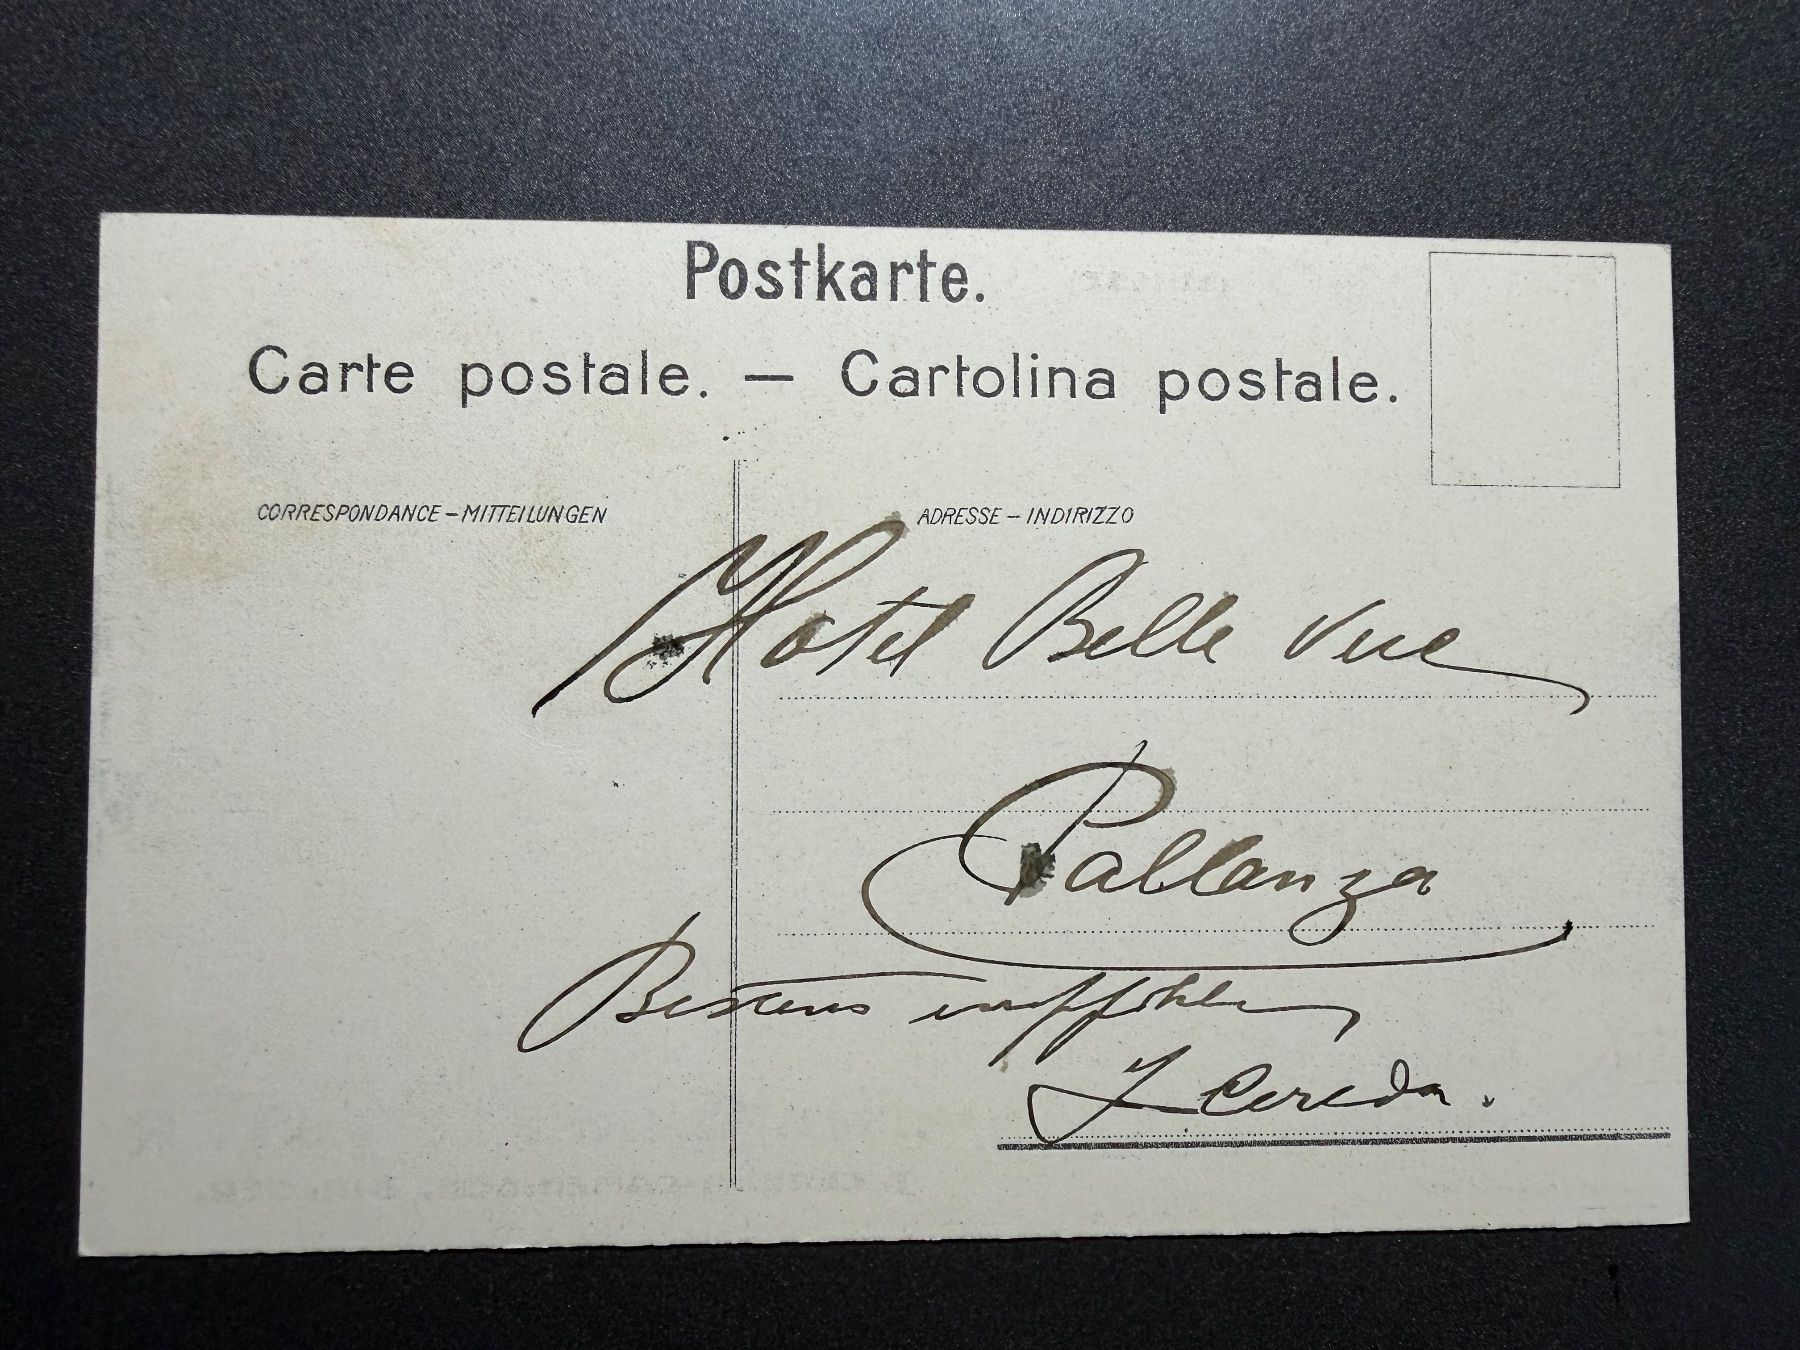 Postkarte.
Carte postale. — Cartolina postale.
CORRESPONDANCE – MITTEILUNGEN
ADRESSE – INDIRIZZO
Hotel Belle Vue
Pallanza
Bestens empfohlen
Cereda.